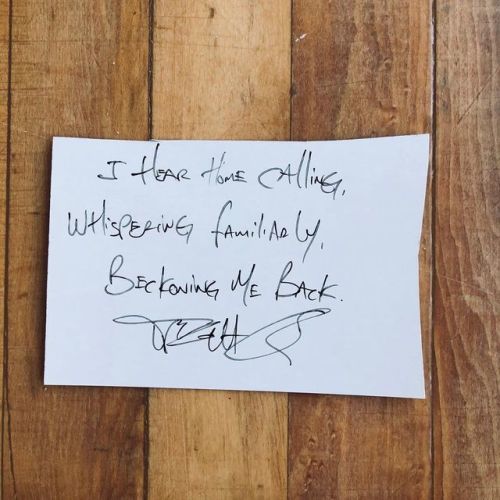 I Hear Home Calling,
Whispering familiarly,
Beckoning Me Back.